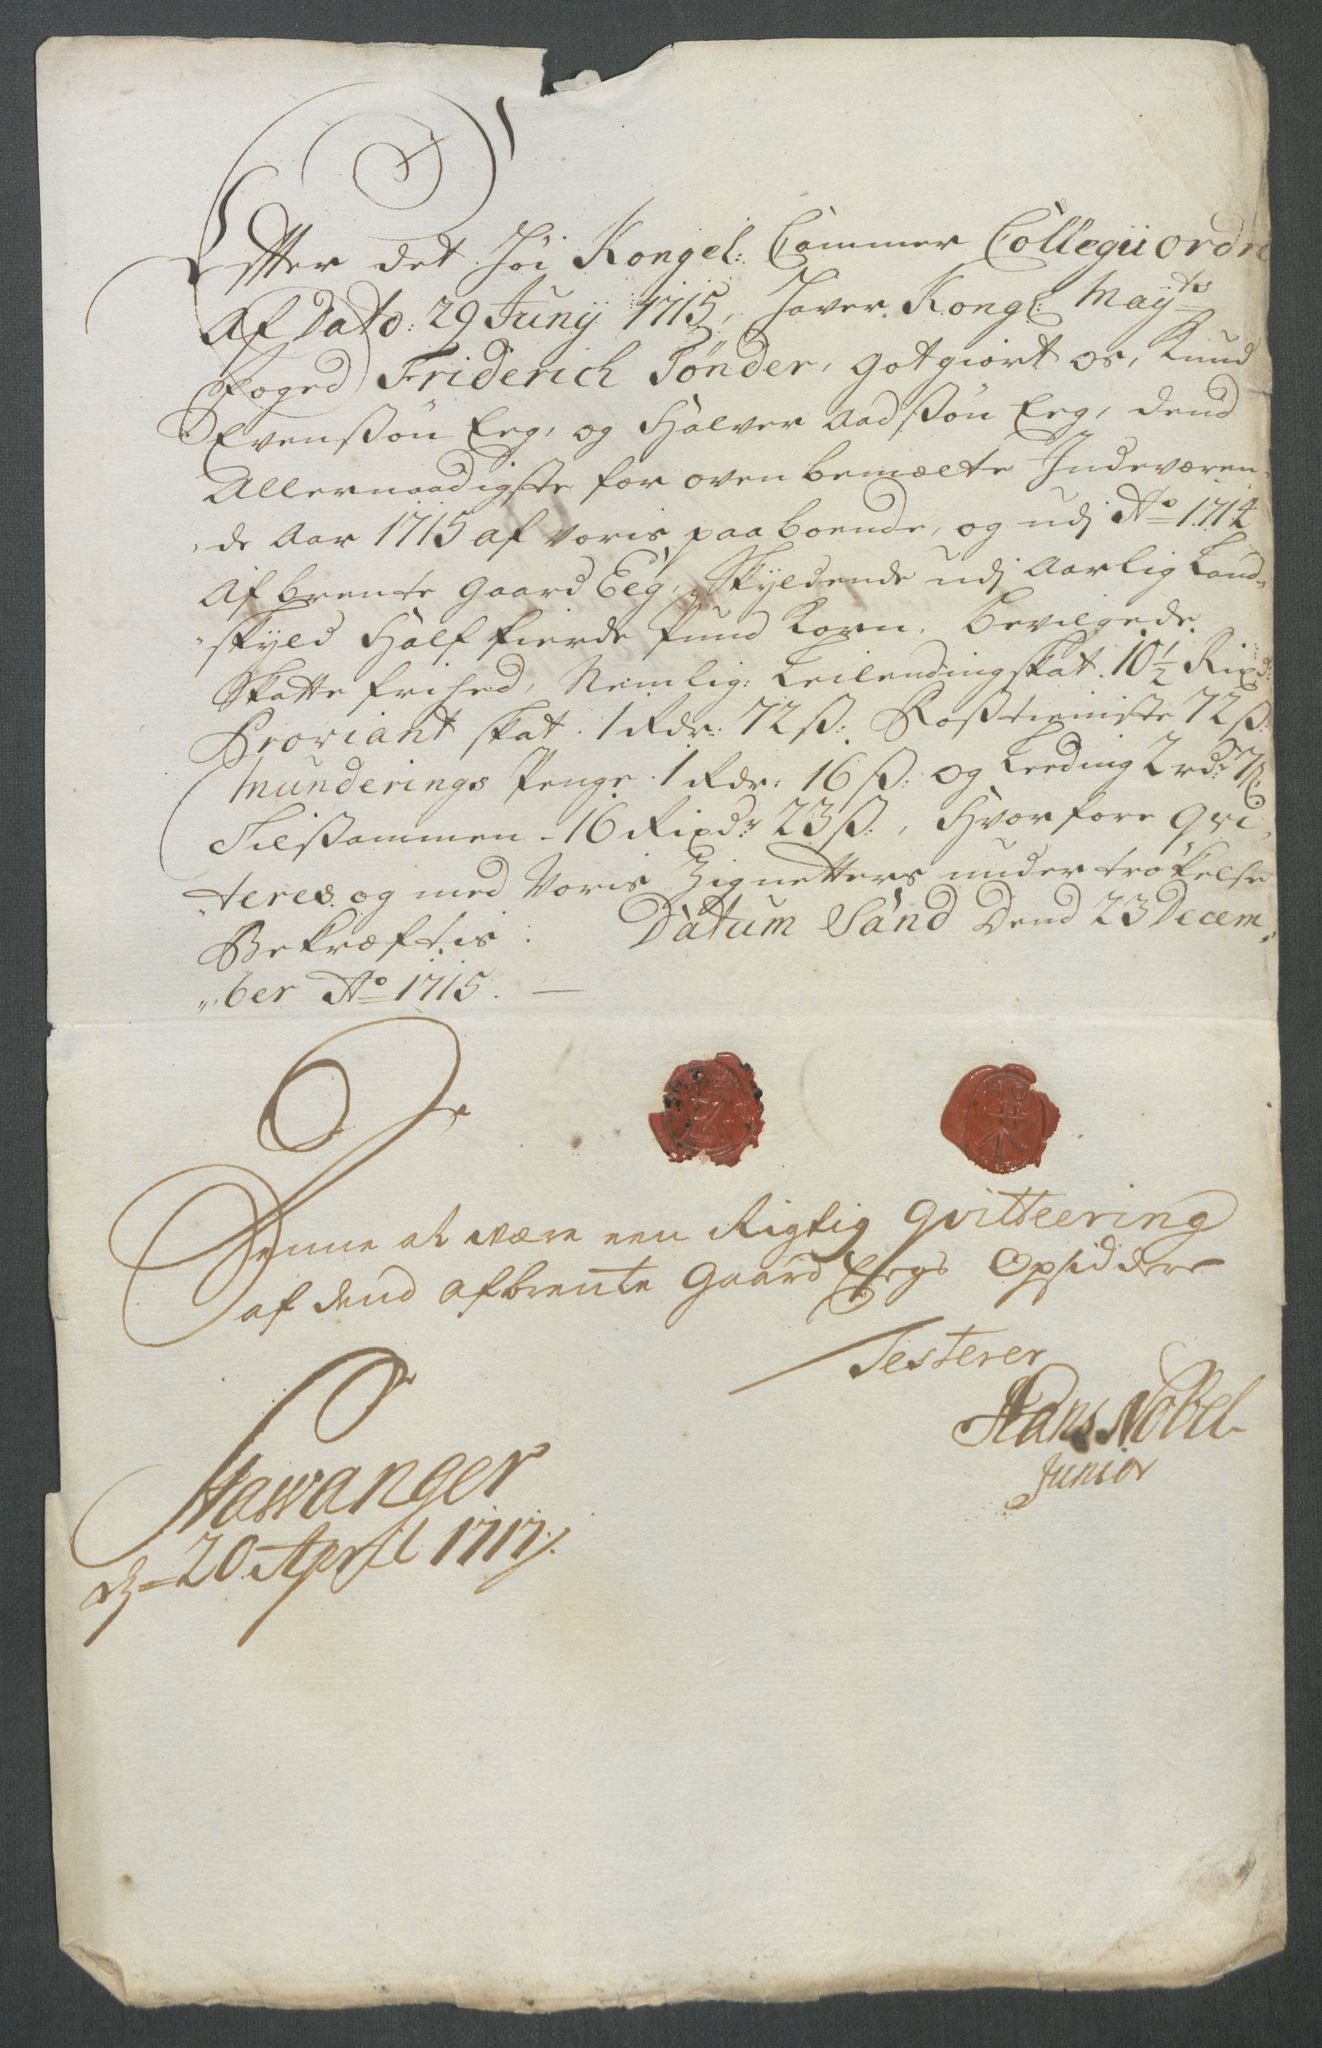 Efter det Høi Kongel: Cammer Collegii ordre
Af Dato: 29 Junij 1715, Haver Kongl: Mayts
Foged Friderich Tønder, got giort os, Knud
Evenssøn Eeg, og Halver Aadssøn Eeg, dend
Allernaadigste for oven bemælte Indeværen„
„de Aar 1715 af voris paaboende, og udj Ao 1714
Afbrente gaard Eeg, Skyldende udj Aarlig Land„
„skyld Half fierde pund Korn, bevilgede
Skatte frihed, Nemlig: Leilendingskat 10½ Rixd:
Proviant skat 1 Rdr: 72 ß: Rosstieniste 72 ß:
Munderings Penge 1 Rdr: 16 ß: og Leeding 2 rdr
Tilsammen - 16 Rixdr 23 ß:, Hvorfore qvi„
„teres og med Voris Zignetters undertrøkelse
Bekræftis: Datum Sand Dend 23 Decem„
„ber Ao 1715. —
Denne at være een Rigtig qvitteering
af dend afbrente Gaard Eegs Opsiddere
Testerer
Hans Nobel
Junior
Stawanger
d 20 April 1717.